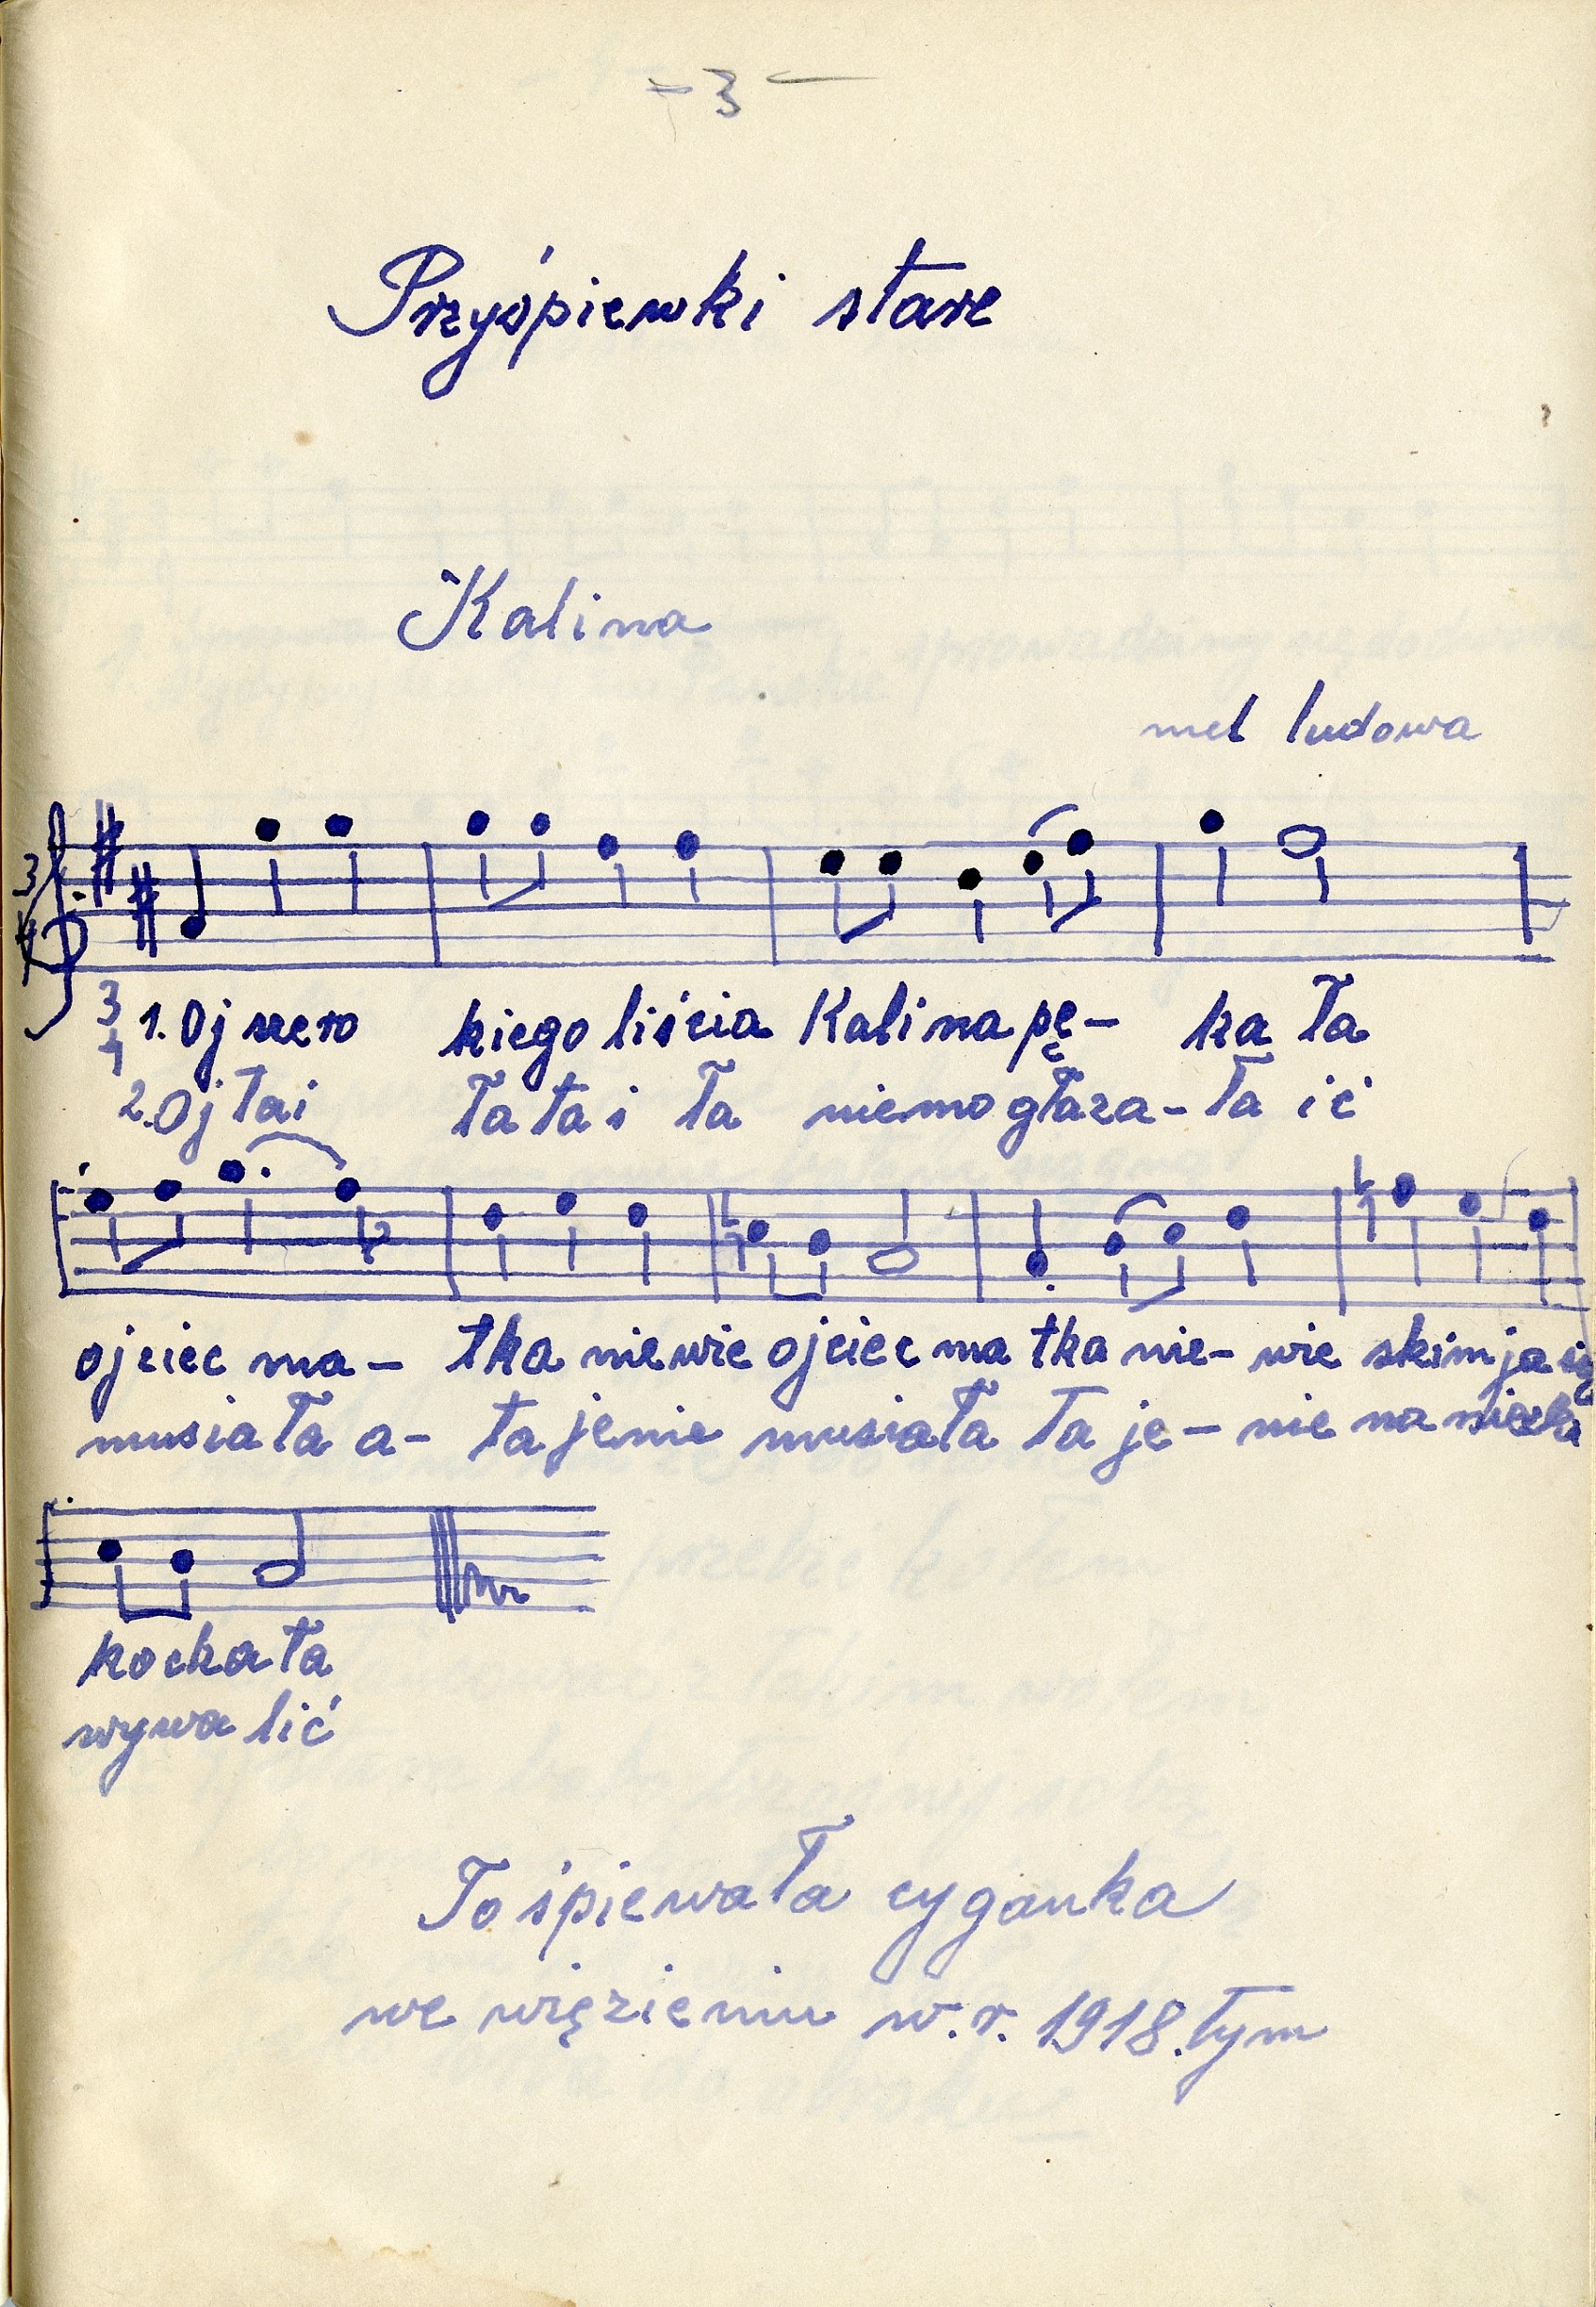 - 3 -
Przyśpiewki stare
Kalina
mel ludowa
3
4
3
4
1. Oj szero kiego liścia Kalina pę- ka ła
2. Oj tai ła ta i ła niemogłaza- ta ić
ojciec ma- tka niewie ojciec ma tka nie- wie skim ja się
musiała a- ta jenie musiała ta je- nie na
kochała
wywa lić
To śpiewała cyganka
we więzieniu w.r. 1918.tym